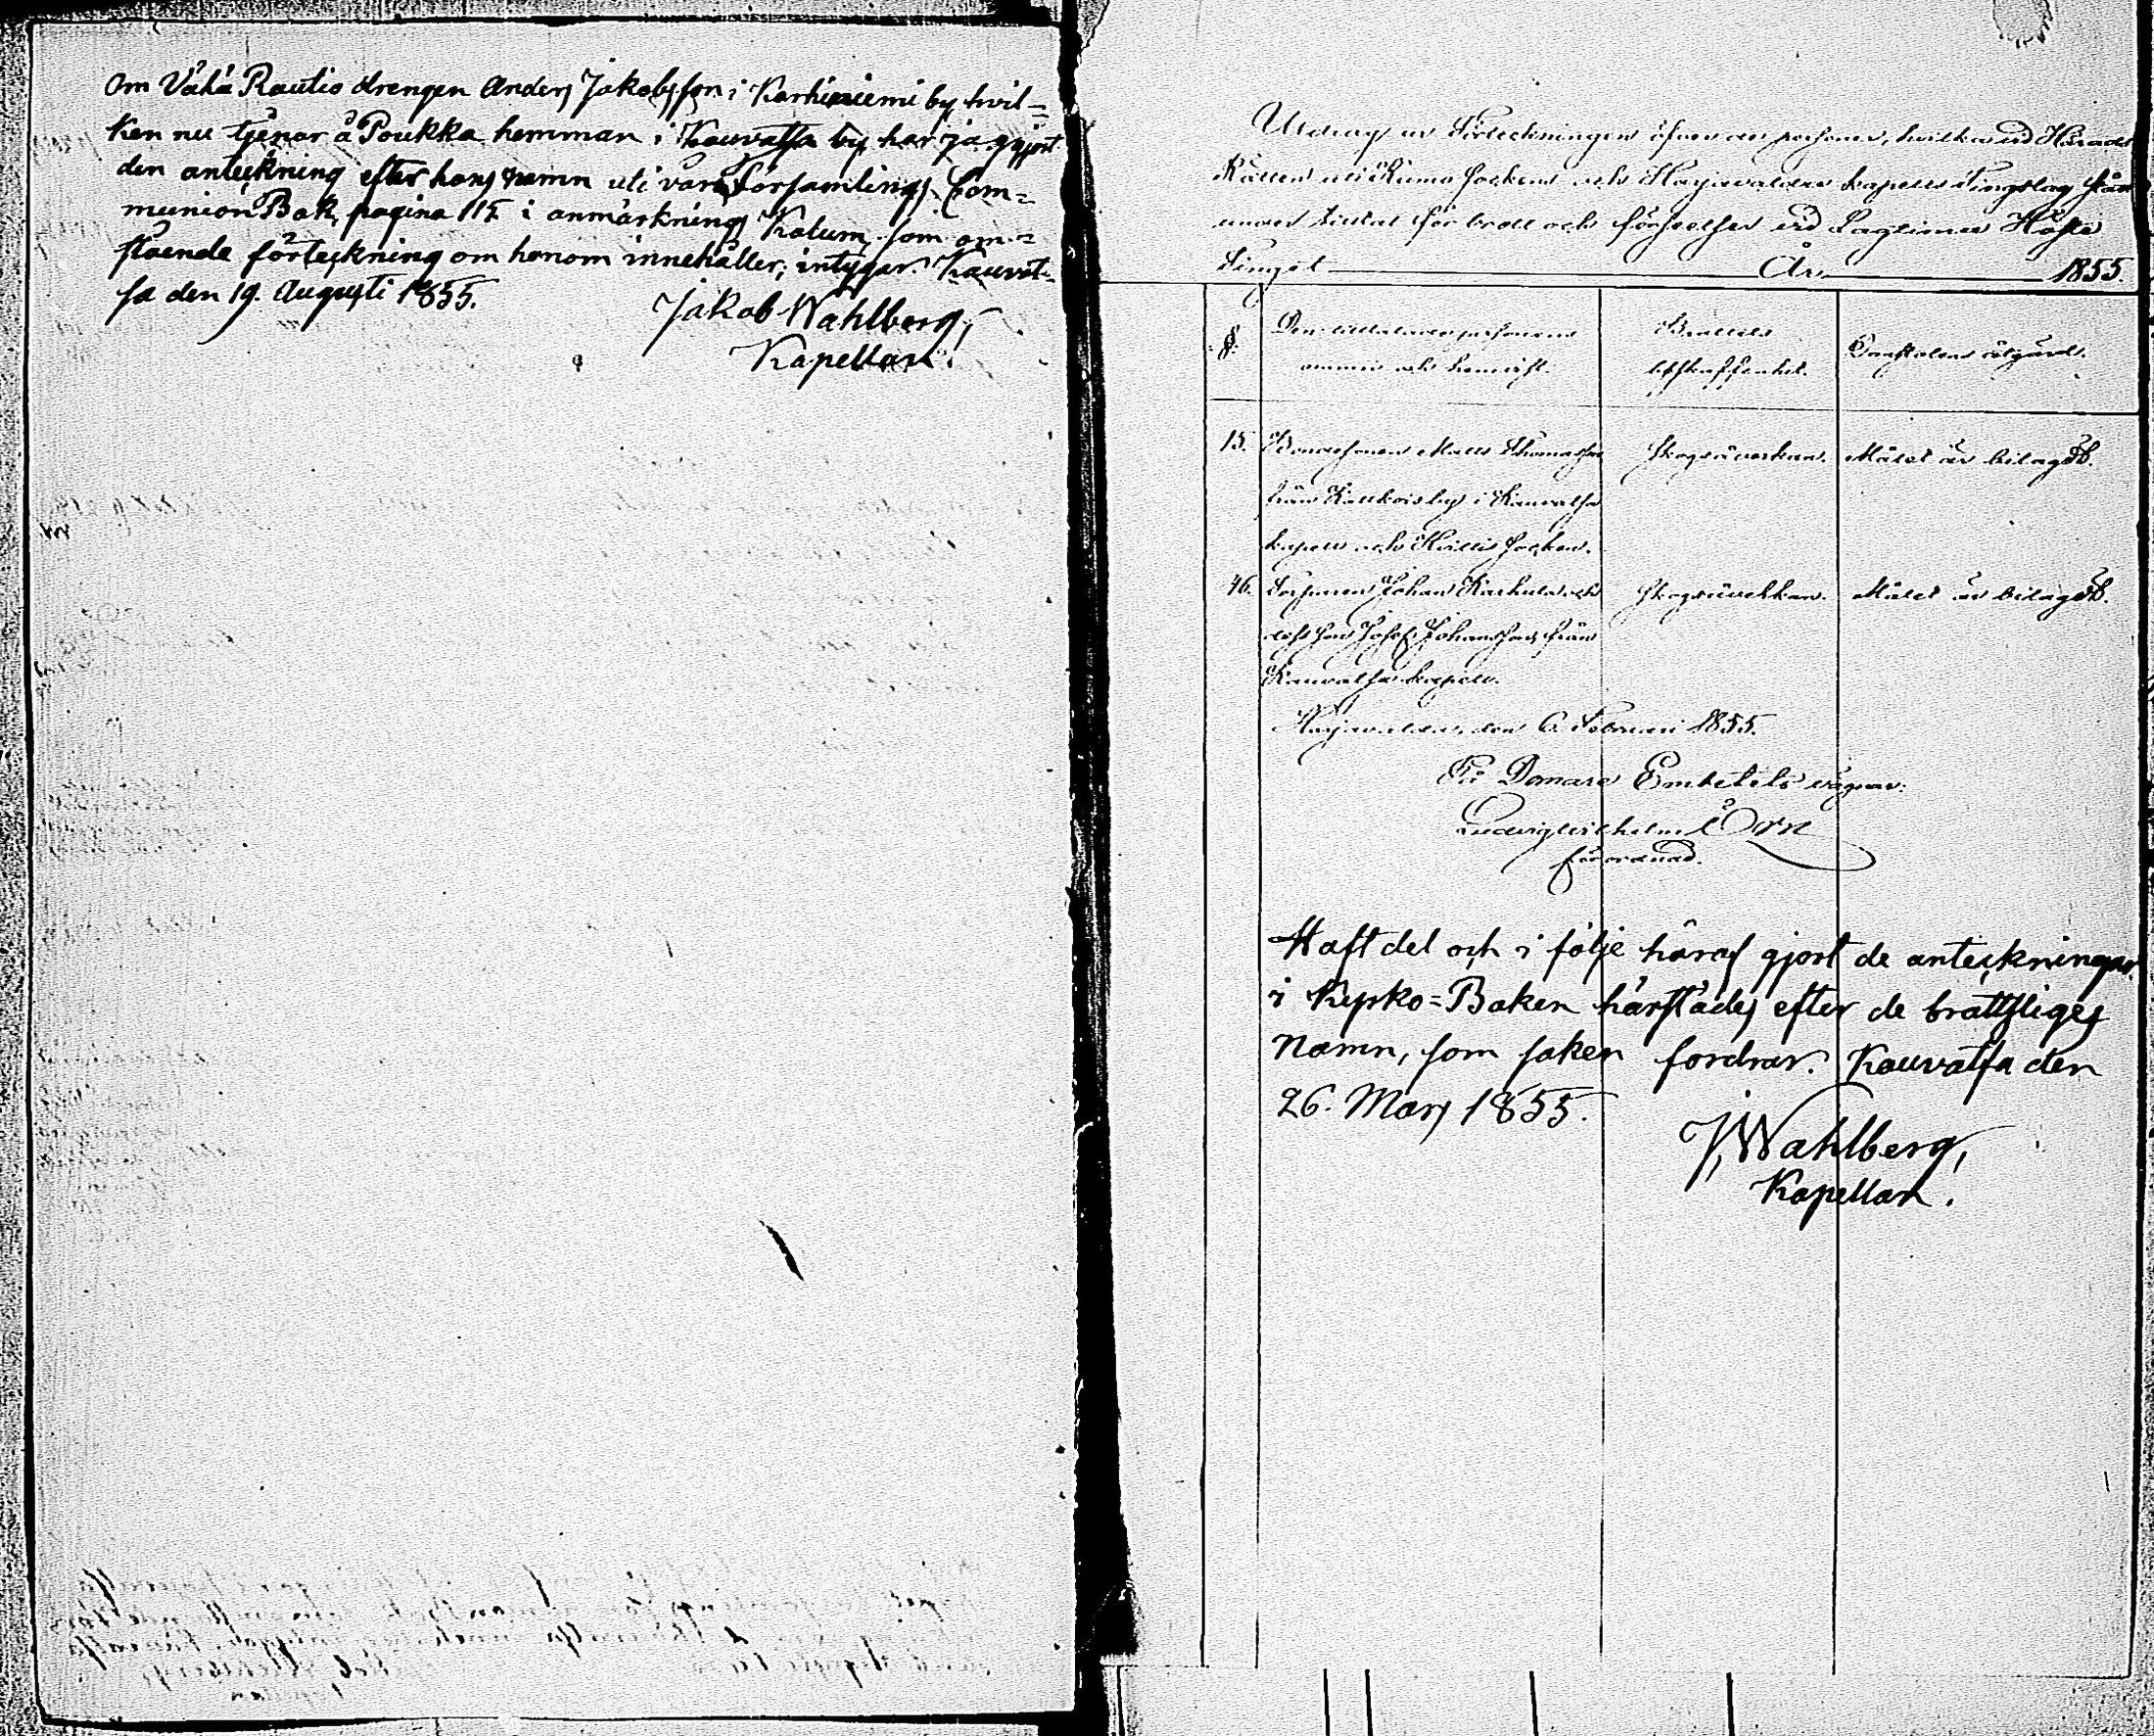 Om Vähä Rautio drengen Anders Jakobsson i Karhiniemi by hvil=
ken nu tjenar å Poukka hemman i Kauvatsa by har jag gjort
den anteckning efter hans namn uti vår Församlings Com=
munion Bok, pagina 115 i anmärknings Kolum, som om=
stående förteckning om honom innehåller; intygar. Kauvat=
sa den 19. Augusti 1855.
Jakob Wahlberg,
Kapellan.
Utdrag ur Förteckningen öfver de personer, hvilka vid Härads
Rätten uti Kumo Socken och Harjavalda kapells Tingslag stått
under tilltal för brott och förseelser vid Lagtima Höste
Tinget År 1855.
§.
Den tilltalade personens
namn och hemvist.
Brottets
beskaffenhet.
Domstolens åtgärd.
15. Bondesonen Matts Thomasson Skogsåverkan. Målet är bilagdt.
från Kaukois by i Kauvatsa
kapell och Hvittis Socken.
46. Torparen Johan Karhula och Skogsåverkan. Målet är bilagdt.
dess son Josef Johansson, från
Kauvatsa kapell.
Harjavalda, den 6 Februari 1855.
På Domare Embetets vägnar:
Ludvig Wilhelm Örn
förordnad.
Haft del och i följe häraf gjort de anteckningar
i Kyrko=Boken härstädes efter de brottsliges
Namn, som saken fordrar. Kauvatsa den
26. Mars 1855.
J. Wahlberg,
Kapellan.